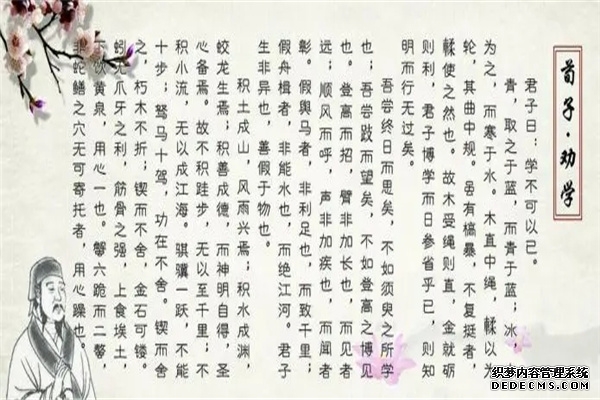 荀子·劝学
君子曰：学不可以已。
青，取之于蓝，而青于蓝；冰，
为之，而寒于水。木直中绳，輮以为
轮，其曲中规。虽有槁暴，不复挺者，
輮使之然也。故木受绳则直，金就砺
则利，君子博学而日参省乎己，则知
明而行无过矣。
吾尝终日而思矣，不如须臾之所学
也；吾尝跂而望矣，不如登高之博见
也。登高而招，臂非加长也，而见者
远；顺风而呼，声非加疾也，而闻者
彰。假舆马者，非利足也，而致千里；
假舟楫者，非能水也，而绝江河。君子
生非异也，善假于物也。
积土成山，风雨兴焉；积水成渊，
蛟龙生焉；积善成德，而神明自得，圣
心备焉。故不积跬步，无以至千里；不
积小流，无以成江海。骐骥一跃，不能
十步；驽马十驾，功在不舍。锲而舍
之，朽木不折；锲而不舍，金石可镂。
蚓无爪牙之利，筋骨之强，上食埃土，
下饮黄泉，用心一也。蟹六跪而二螯，
非蛇鳝之穴无可寄托者，用心躁也。
织梦内容管理系统
DEDECMS.COM